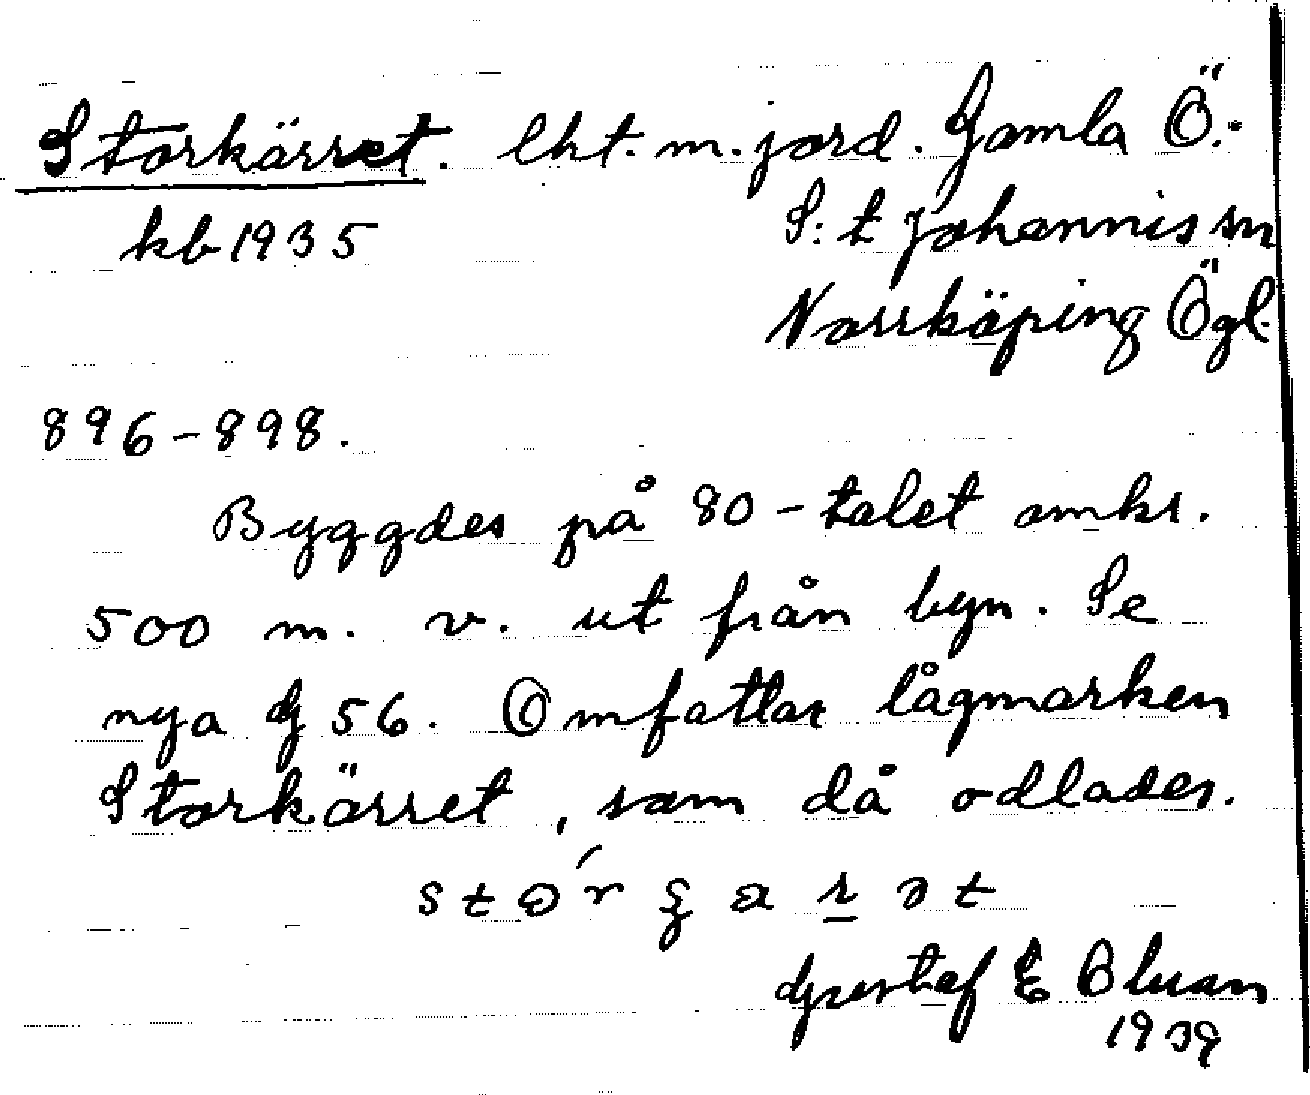 Storkärret. lht. m. jord. Gamla Ö.
kb 1935 S:t Johannis sn
Norrköping Ögl.
896-898.
Byggdes på 80-talet omkr.
500 m. v. ut från byn. Se
nya G 56. Omfattar lågmarken
Storkärret, som då odlades.
Gustaf E
1939